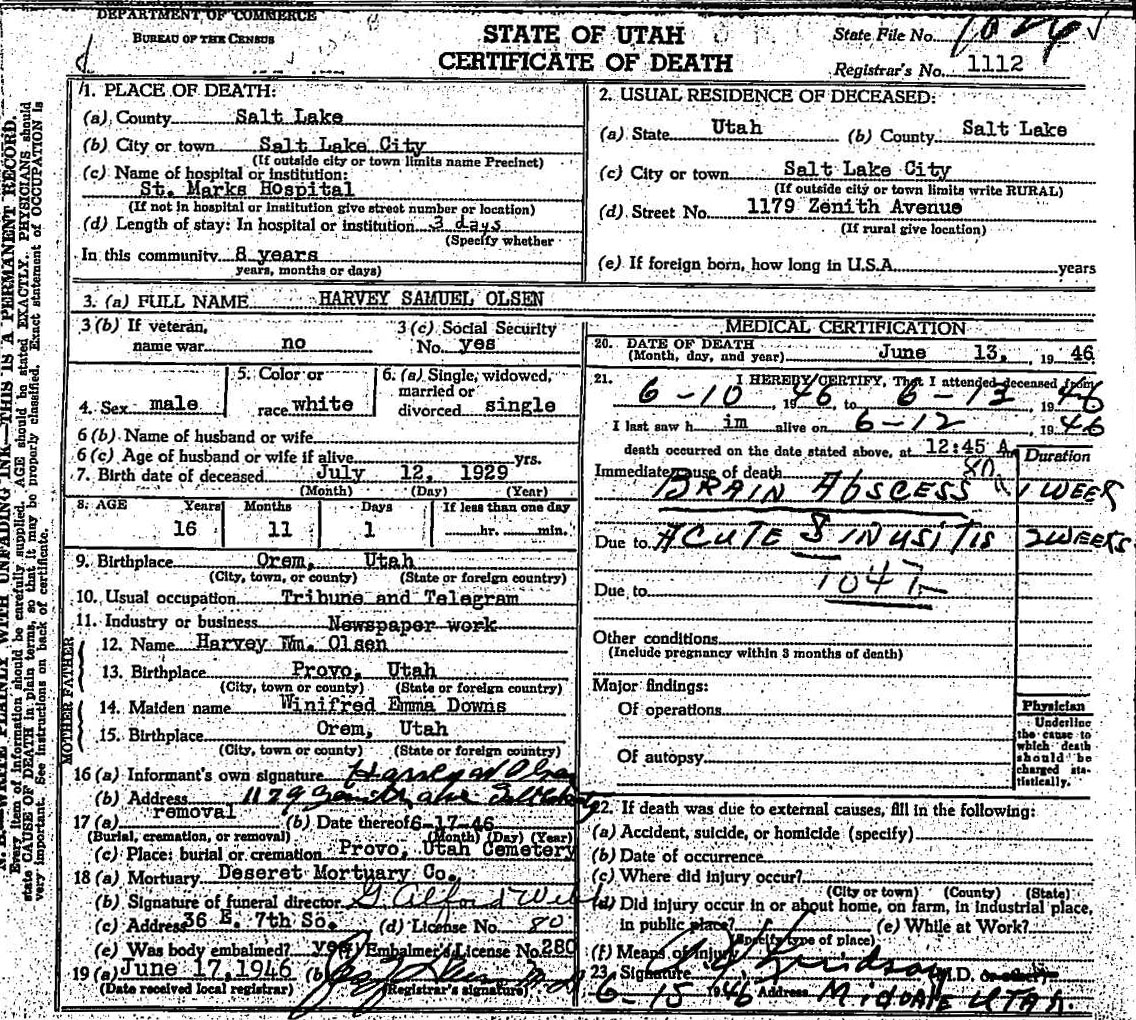 DEPARTMENT OF COMMERCE
BUREAU OF THE CENSUS
STATE OF UTAH
CERTIFICATE OF DEATH
State File No.
Registrar's No. 1112
N. B.—WRITE PLAINLY WITH UNFADING INK—THIS IS A PERMANENT RECORD.
Every item of information should be carefully supplied. AGE should be stated EXACTLY. PHYSICIANS should
state CAUSE OF DEATH in plain terms, so that it may be properly classified. Exact statement of OCCUPATION is
very important. See instructions on back of certificate.
1. PLACE OF DEATH:
(a) County Salt Lake
(b) City or town Salt Lake City
(If outside city or town limits name Precinct)
(c) Name of hospital or institution:
St. Marks Hospital
(If not in hospital or institution give street number or location)
(d) Length of stay: In hospital or institution 3 days
(Specify whether
In this community 8 years
years, months or days)
2. USUAL RESIDENCE OF DECEASED:
(a) State Utah (b) County Salt Lake
(c) City or town Salt Lake City
(If outside city or town limits write RURAL)
(d) Street No. 1179 Zenith Avenue
(If rural give location)
(e) If foreign born, how long in U.S.A. years
3. (a) FULL NAME HARVEY SAMUEL OLSEN
3 (b) If veteran,
name war no
3 (c) Social Security
No. yes
4. Sex male
5. Color or
race white
6. (a) Single, widowed,
married or
divorced single
6 (b) Name of husband or wife
6 (c) Age of husband or wife if alive yrs.
7. Birth date of deceased July 12, 1929
(Month) (Day) (Year)
8. AGE Years Months Days If less than one day
16 11 1 hr. min.
9. Birthplace Orem, Utah
(City, town, or county) (State or foreign country)
10. Usual occupation Tribune and Telegram
11. Industry or business Newspaper work
FATHER
12. Name Harvey Wm. Olsen
13. Birthplace Provo, Utah
(City, town or county) (State or foreign country)
MOTHER
14. Maiden name Winifred Emma Downs
15. Birthplace Orem, Utah
(City, town, or county) (State or foreign country)
16 (a) Informant's own signature Harvey W Olsen
(b) Address 1179 Zenith ave
17 (a) removal (b) Date thereof 6-17-46
(Burial, cremation, or removal) (Month) (Day) (Year)
(c) Place: burial or cremation Provo, Utah Cemetery
18 (a) Mortuary Deseret Mortuary Co.
(b) Signature of funeral director
(c) Address 36 E. 7th So. (d) License No. 80
(e) Was body embalmed? yes (f) Embalmer's License No. 280
19 (a) June 17, 1946 (b)
(Date received local registrar) (Registrar's signature)
MEDICAL CERTIFICATION
20. DATE OF DEATH
(Month, day, and year) June 13, 1946
21. I HEREBY CERTIFY, That I attended deceased from
6-10, 1946, to 6-13 1946
I last saw him alive on 6-12 1946
death occurred on the date stated above, at 12:45 A m
Duration
Immediate cause of death
BRAIN ABSCESS 1 WEEK
Due to ACUTE SINUSITIS 2 WEEKS
Due to
Other conditions
(Include pregnancy within 3 months of death)
Major findings:
Of operations
Of autopsy
Physician
Underline
the cause to
which death
should be
charged sta-
tistically.
22. If death was due to external causes, fill in the following:
(a) Accident, suicide, or homicide (specify)
(b) Date of occurrence
(c) Where did injury occur?
(City or town) (County) (State)
(d) Did injury occur in or about home, on farm, in industrial place,
in public place? (e) While at Work?
(Specify type of place)
(f) Means of injury
23. Signature M.D.
6-15 1946 Address MIDVALE UTAH.